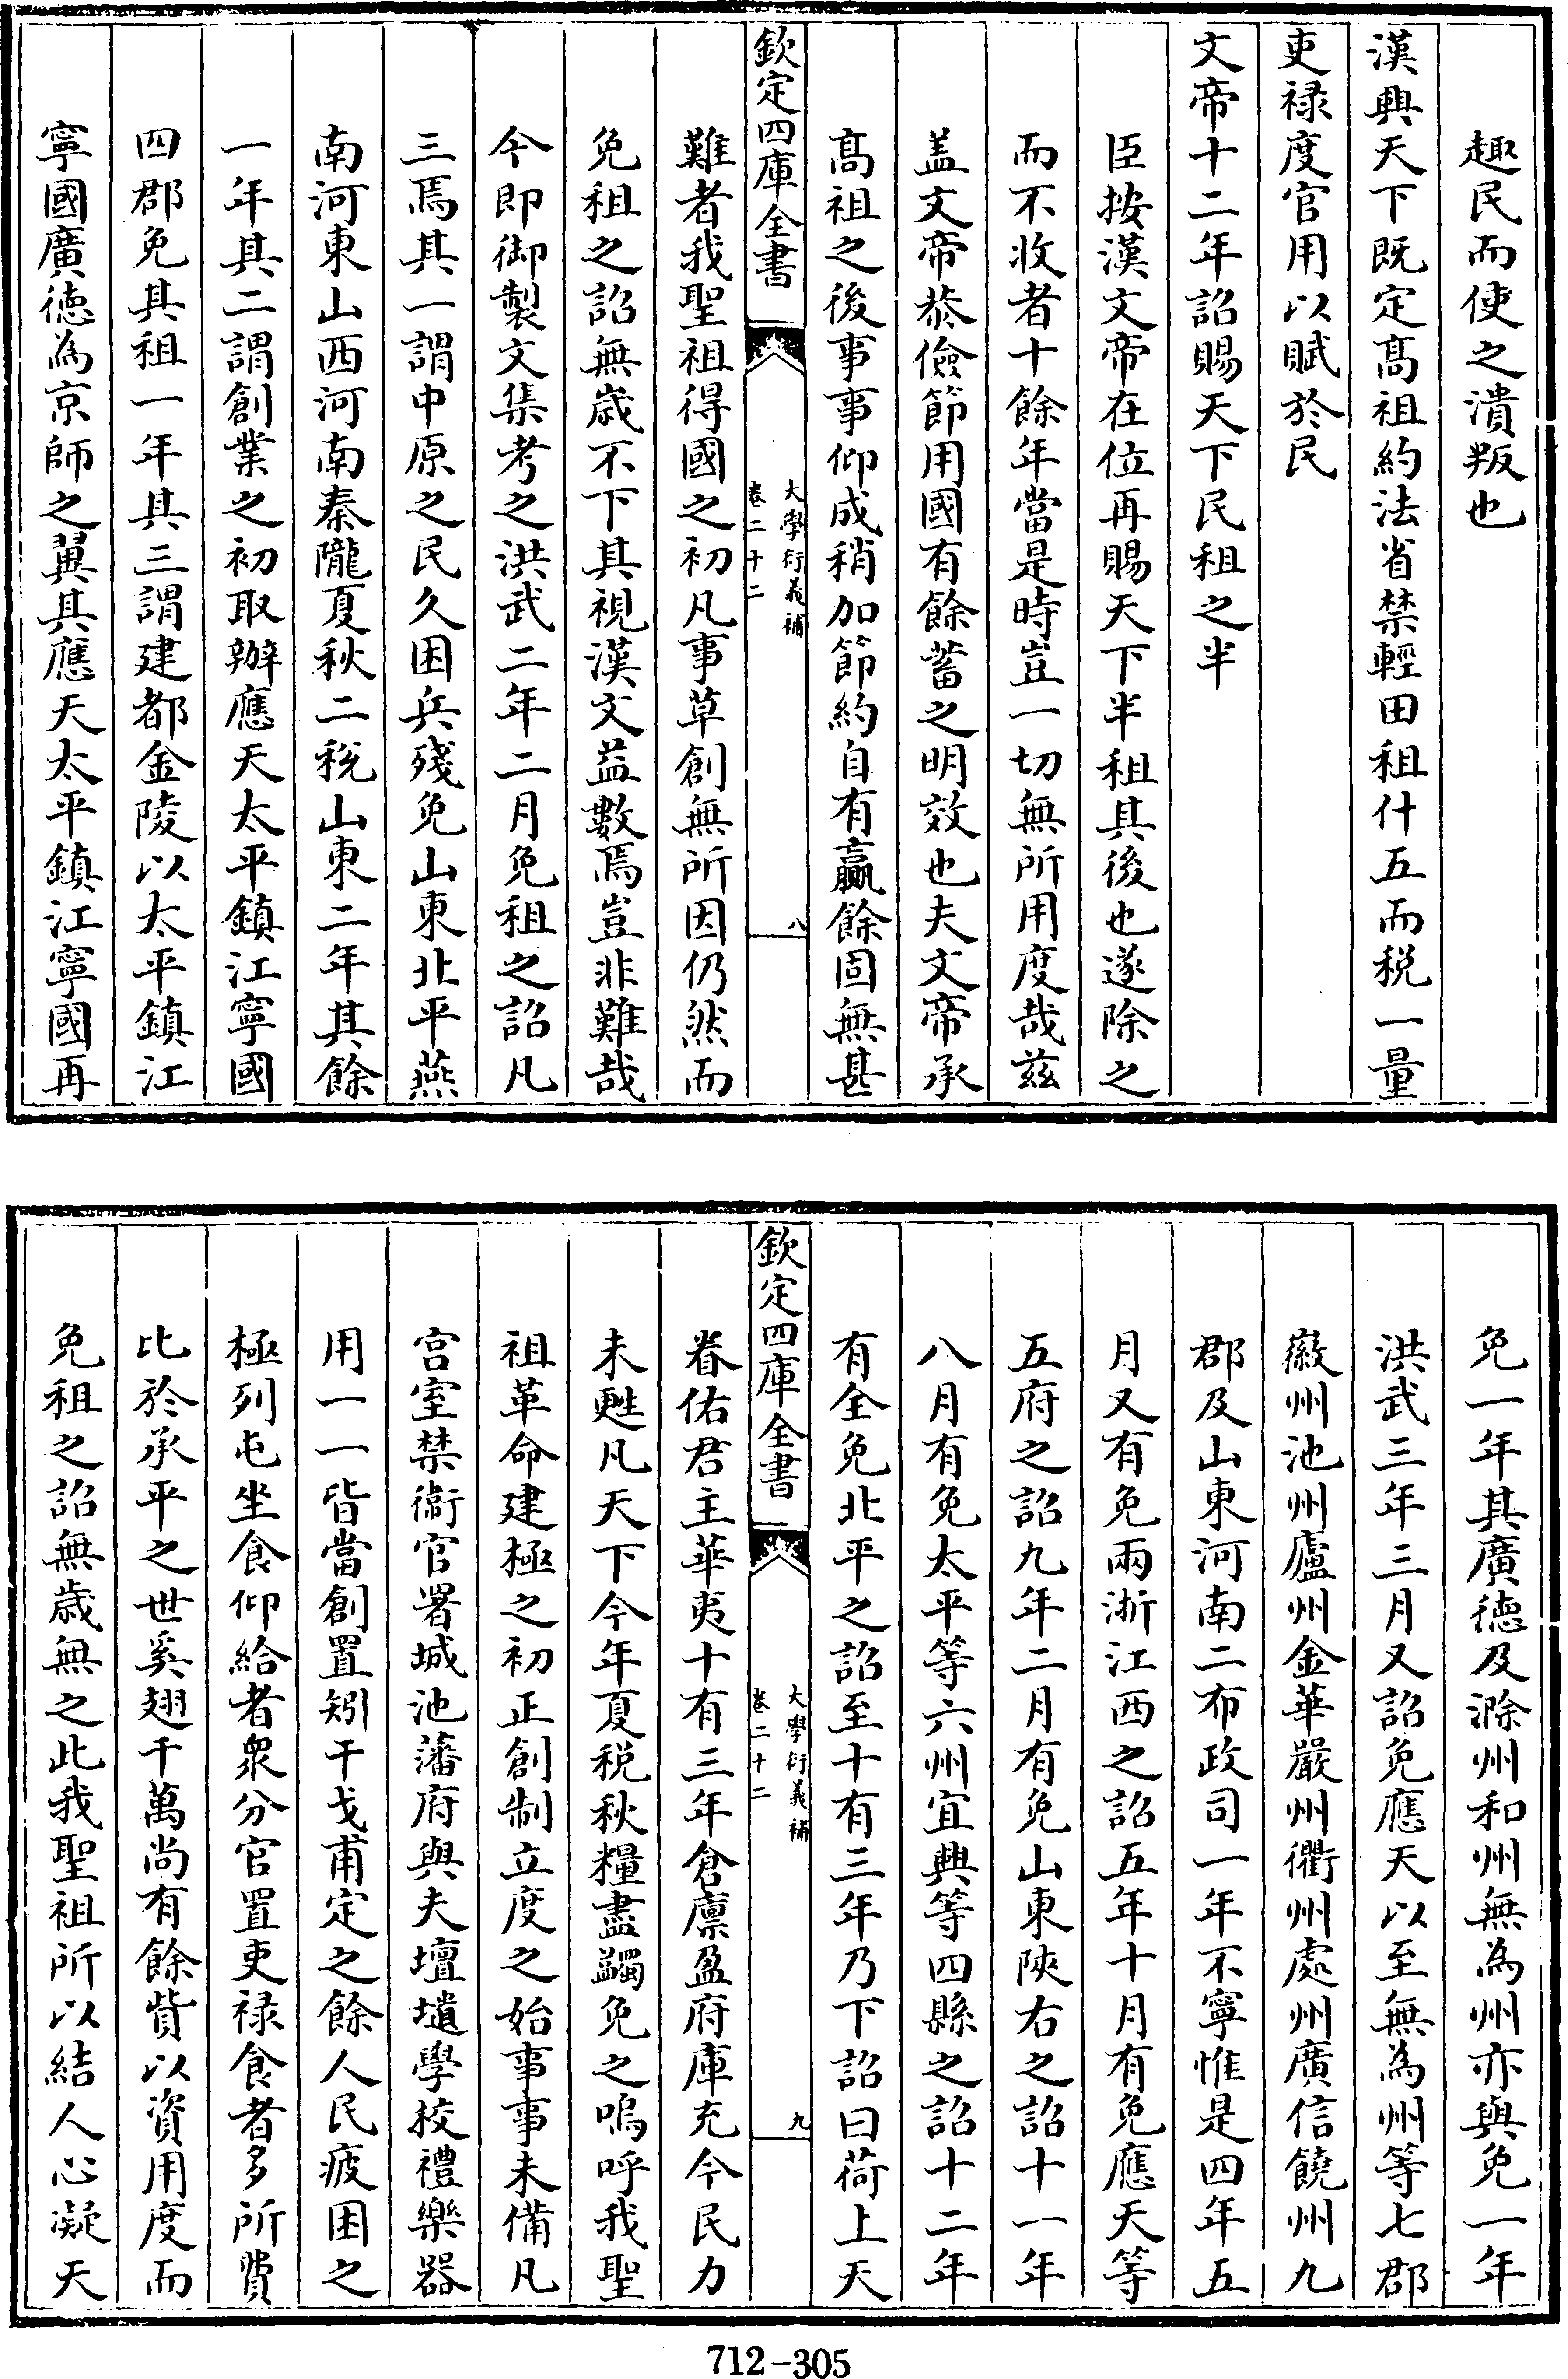 趣民而使之潰叛也
漢興天下既定髙祖約法省禁輕田租什五而税一量
吏禄度官用以賦於民
文帝十二年詔賜天下民租之半
臣按漢文帝在位再賜天下半租其後也遂除之
而不收者十餘年當是時豈一切無所用度哉兹
盖文帝恭儉節用國有餘蓄之明效也夫文帝承
髙祖之後事事仰成稍加節約自有贏餘固無甚
欽定四庫全書
大學衍義補
卷二十二
八
難者我聖祖得國之初凡事草創無所因仍然而
免租之詔無嵗不下其視漢文益數焉豈非難哉
今即御製文集考之洪武二年二月免租之詔凡
三焉其一謂中原之民久困兵殘免山東北平燕
南河東山西河南秦隴夏秋二税山東二年其餘
一年其二謂創業之初取辦應天太平鎮江寧國
四郡免其租一年其三謂建都金陵以太平鎮江
寧國廣德為京師之翼其應天太平鎮江寧國再
免一年其廣徳及滁州和州無為州亦與免一年
洪武三年三月又詔免應天以至無為州等七郡
徽州池州廬州金華嚴州衢州處州廣信饒州九
郡及山東河南二布政司一年不寧惟是四年五
月又有免兩浙江西之詔五年十月有免應天等
五府之詔九年二月有免山東陜右之詔十一年
八月有免太平等六州宜興等四縣之詔十二年
有全免北平之詔至十有三年乃下詔曰荷上天
欽定四庫全書
大學衍義補
卷二十二
九
眷佑君主華夷十有三年倉廪盈府庫充今民力
未甦凡天下今年夏税秋糧盡蠲免之嗚呼我聖
祖革命建極之初正創制立度之始事事未備凡
宫室禁衞官署城池藩府與夫壇壝學校禮樂器
用一一皆當創置矧干戈甫定之餘人民疲困之
極列屯坐食仰給者衆分官置吏禄食者多所費
比於承平之世奚翅千萬尚有餘貲以資用度而
免租之詔無歲無之此我聖祖所以結人心凝天
712-305